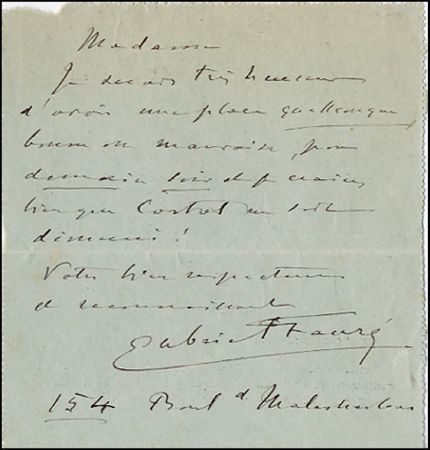 Madame
Je serais très heureux
d'avoir une place quelconque,
bonne ou mauvaise, pour
demain soir et je
bien que
Votre bien respectueux
et reconnaissant
Gabriel Fauré
154 Boul^d Malesherbes